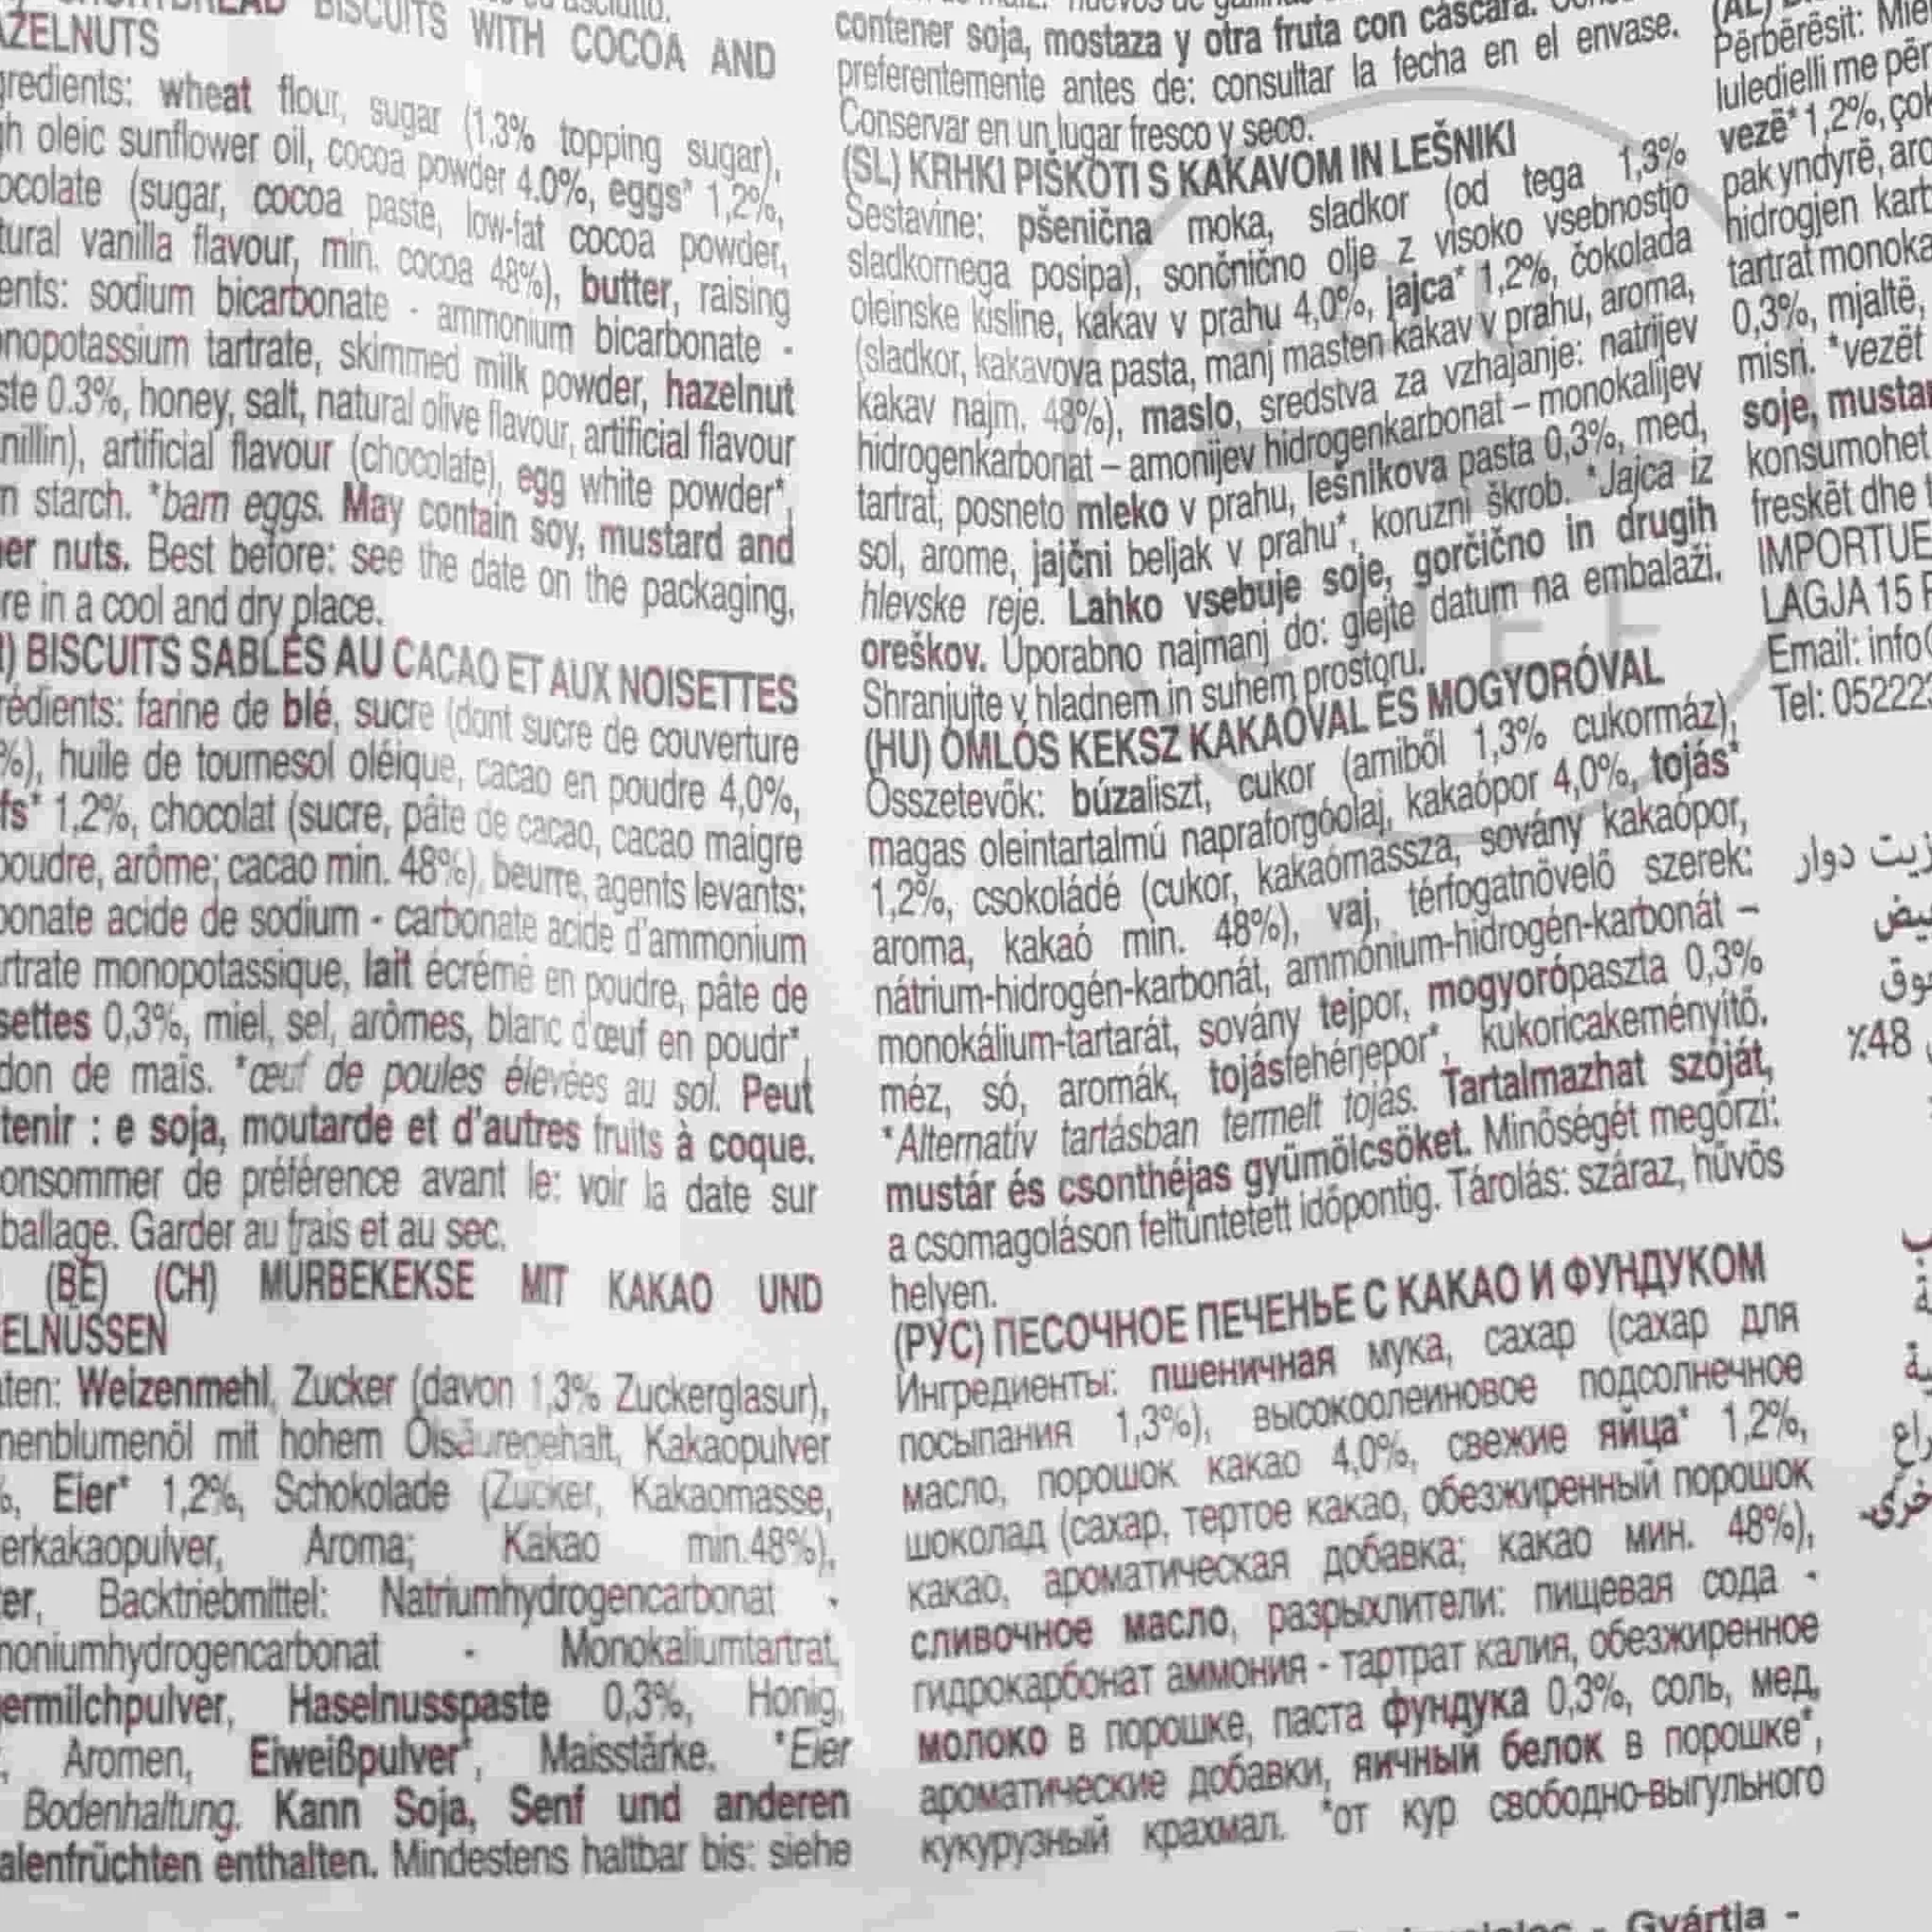 BISCUITS WITH COCOA AND
AZELNUTS
gredients: wheat flour, sugar (1.3% topping sugar),
gh oleic sunflower oil, cocoa powder 4.0%, eggs* 1,2%,
ocolate (sugar, cocoa paste, low-fat cocoa powder,
tural vanilla flavour, min. cocoa 48%), butter, raising
ents: sodium bicarbonate - ammonium bicarbonate -
onopotassium tartrate, skimmed milk powder, hazelnut
ste 0.3%, honey, salt, natural olive flavour, artificial flavour
nillin), artificial flavour (chocolate), egg white powder*,
n starch. *barn eggs. May contain soy, mustard and
er nuts. Best before: see the date on the packaging.
re in a cool and dry place.
) BISCUITS SABLÉS AU CACAO ET AUX NOISETTES
rédients: farine de blé, sucre (dont sucre de couverture
%), huile de tournesol oléique, cacao en poudre 4,0%,
fs* 1,2%, chocolat (sucre, pâte de cacao, cacao maigre
poudre, arôme; cacao min. 48%), beurre, agents levants:
bonate acide de sodium - carbonate acide d'ammonium
rtrate monopotassique, lait écrémé en poudre, pâte de
settes 0,3%, miel, sel, arômes, blanc d'œuf en poudr*,
don de maïs. *œuf de poules élevées au sol. Peut
tenir : e soja, moutarde et d'autres fruits à coque.
onsommer de préférence avant le: voir la date sur
ballage. Garder au frais et au sec.
(BE) (CH) MÜRBEKEKSE MIT KAKAO UND
ELNÜSSEN
ten: Weizenmehl, Zucker (davon 1,3% Zuckerglasur),
nenblumenöl mit hohem Ölsäuregehalt, Kakaopulver
%, Eier* 1,2%, Schokolade (Zucker, Kakaomasse,
erkakaopulver, Aroma; Kakao min.48%),
er, Backtriebmittel: Natriumhydrogencarbonat -
moniumhydrogencarbonat - Monokaliumtartrat,
germilchpulver, Haselnusspaste 0,3%, Honig,
, Aromen, Eiweißpulver*, Maisstärke. *Eier
Bodenhaltung. Kann Soja, Senf und anderen
alenfrüchten enthalten. Mindestens haltbar bis: siehe
contener soja, mostaza y otra fruta con cáscara.
preferentemente antes de: consultar la fecha en el envase.
Conservar en un lugar fresco y seco.
(SL) KRHKI PIŠKOTI S KAKAVOM IN LEŠNIKI
Sestavine: pšenična moka, sladkor (od tega 1,3%
sladkornega posipa), sončnično olje z visoko vsebnostjo
oleinske kisline, kakav v prahu 4,0%, jajca* 1,2%, čokolada
(sladkor, kakavova pasta, manj masten kakav v prahu, aroma,
kakav najm. 48%), maslo, sredstva za vzhajanje: natrijev
hidrogenkarbonat – amonijev hidrogenkarbonat – monokalijev
tartrat, posneto mleko v prahu, lešnikova pasta 0,3%, med,
sol, arome, jajčni beljak v prahu*, koruzni škrob. *Jajca iz
hlevske reje. Lahko vsebuje soje, gorčično in drugih
oreškov. Uporabno najmanj do: glejte datum na embalaži.
Shranjujte v hladnem in suhem prostoru.
(HU) OMLÓS KEKSZ KAKAÓVAL ÉS MOGYORÓVAL
Összetevők: búzaliszt, cukor (amiből 1,3% cukormáz),
magas oleintartalmú napraforgóolaj, kakaópor 4,0%, tojás*
1,2%, csokoládé (cukor, kakaómassza, sovány kakaópor,
aroma, kakaó min. 48%), vaj, térfogatnövelő szerek:
nátrium-hidrogén-karbonát, ammónium-hidrogén-karbonát –
monokálium-tartarát, sovány tejpor, mogyorópaszta 0,3%
méz, só, aromák, tojásfehérjepor*, kukoricakeményítő.
*Alternatív tartásban termelt tojás. Tartalmazhat szóját,
mustár és csonthéjas gyümölcsöket. Minőségét megőrzi:
a csomagoláson feltüntetett időpontig. Tárolás: száraz, hűvös
helyen.
(РУС) ПЕСОЧНОЕ ПЕЧЕНЬЕ С КАКАО И ФУНДУКОМ
Ингредиенты: пшеничная мука, сахар (сахар для
посыпания 1,3%), высокоолеиновое подсолнечное
масло, порошок какао 4,0%, свежие яйца* 1,2%,
шоколад (сахар, тертое какао, обезжиренный порошок
какао, ароматическая добавка; какао мин. 48%),
сливочное масло, разрыхлители: пищевая сода -
гидрокарбонат аммония - тартрат калия, обезжиренное
молоко в порошке, паста фундука 0,3%, соль, мед,
ароматические добавки, яичный белок в порошке*,
кукурузный крахмал. *от кур свободно-выгульного
Përbërësit:
luledielli me për
vezë* 1,2%, çok
pak yndyrë, aro
hidrogjen karb
tartrat monoka
0,3%, mjaltë,
misri. *vezët
soje, mustar
konsumohet
freskët dhe t
IMPORTUE
LAGJA 15
Email: info@
Tel: 05222
زيت دوار
٪48
- Gyártja -